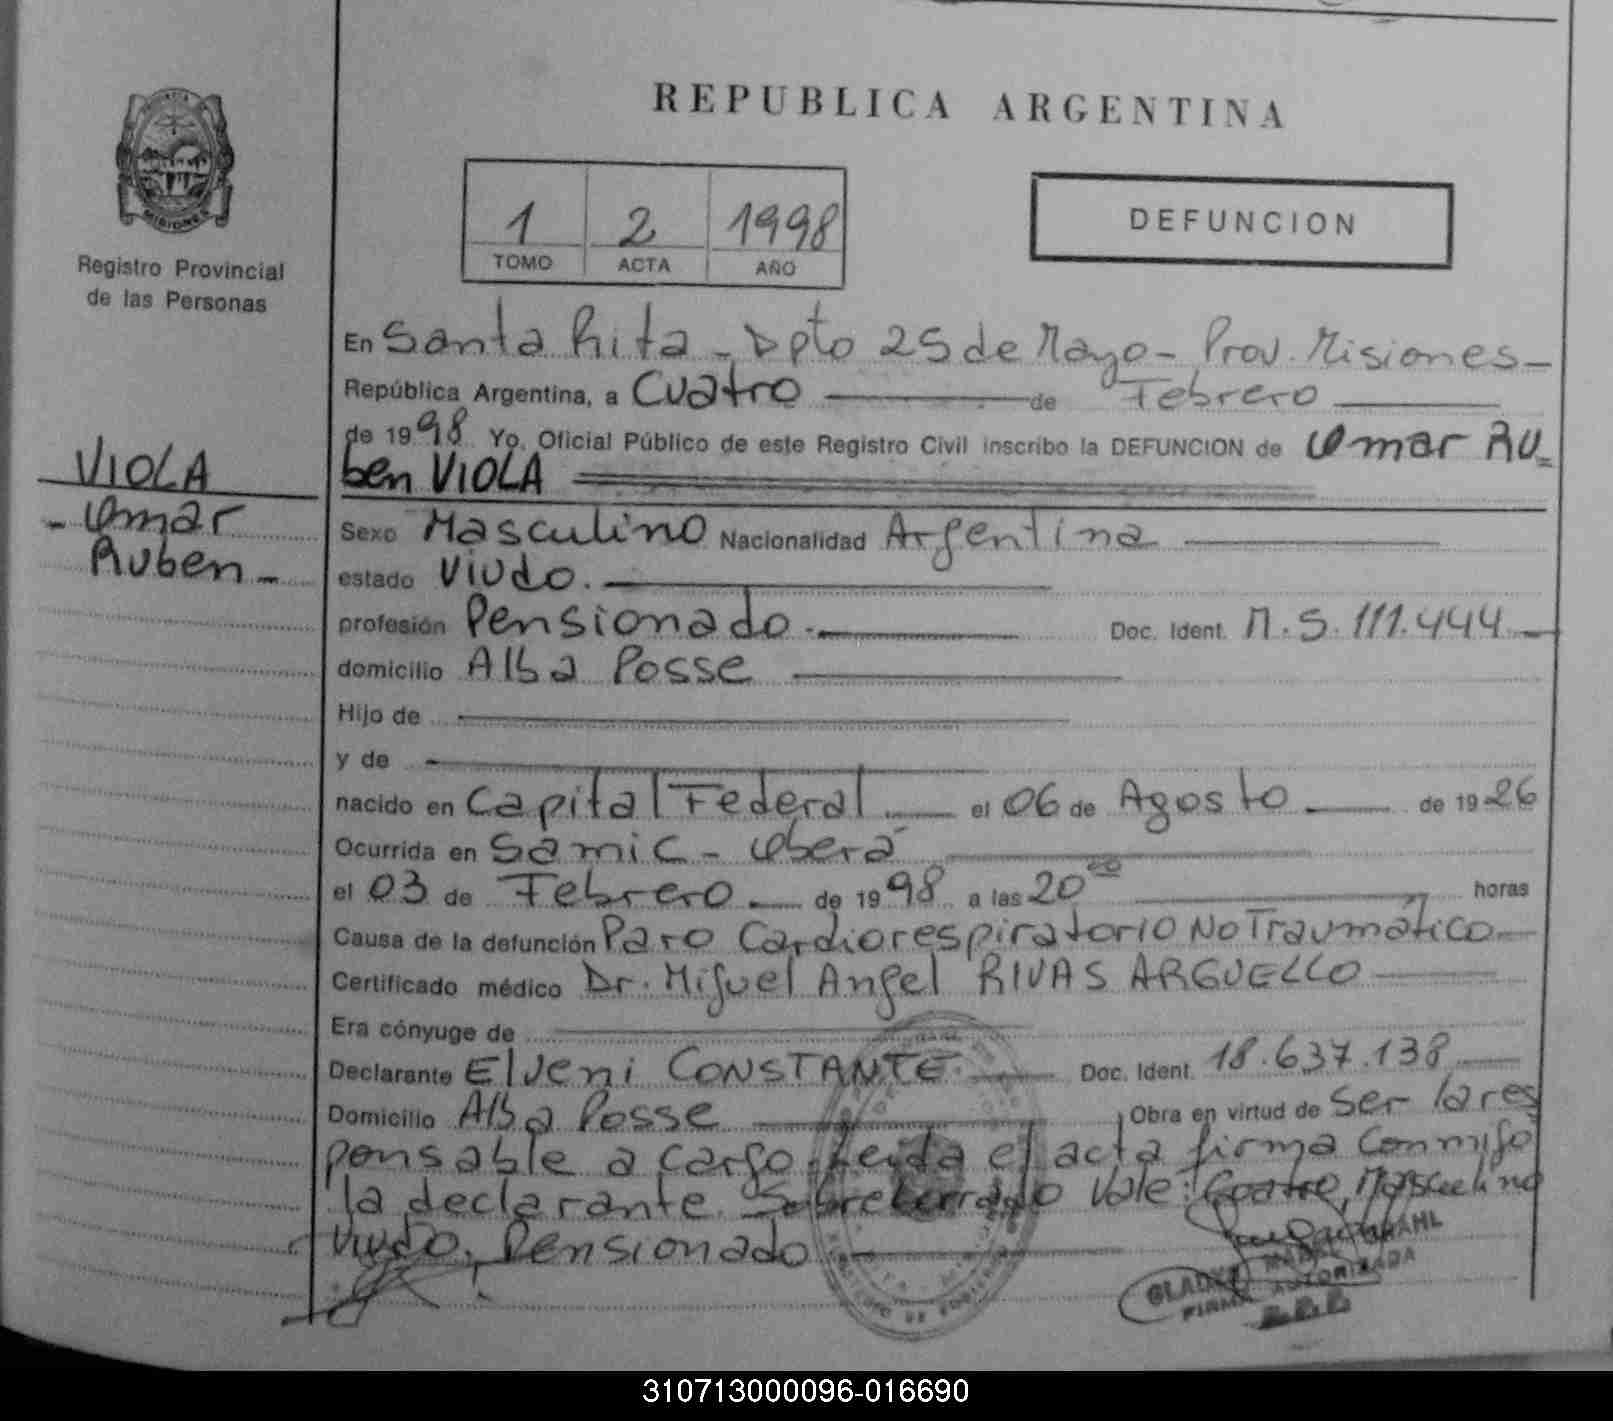 REPUBLICA ARGENTINA
MISIONES
Registro Provincial
de las Personas
1 2 1998
TOMO ACTA AÑO
DEFUNCION
En Santa Rita - Dpto 25 de Mayo - Prov. Misiones -
República Argentina, a Cuatro de Febrero
de 1998 Yo, Oficial Público de este Registro Civil inscribo la DEFUNCION de Omar Ru-
ben VIOLA
VIOLA
- Omar
Ruben -
Sexo Masculino Nacionalidad Argentina
estado Viudo.
profesión Pensionado. Doc. Ident. M.5.111.444
domicilio Alba Posse
Hijo de
y de
nacido en Capital Federal el 06 de Agosto de 1926
Ocurrida en Samic - Oberá
el 03 de Febrero de 1998 a las 20 00 horas
Causa de la defunción Paro Cardiorespiratorio No Traumático
Certificado médico Dr. Miguel Angel RIVAS ARGUELLO
Era cónyuge de
Declarante Elveni CONSTANTE. Doc. Ident. 18.637.138
Domicilio Alba Posse Obra en virtud de Ser la res
ponsable a cargo. Leida el acta firma conmigo
la declarante. Sobreborrado Vale: Cuatro, Masculino
Viudo, Pensionado
GLADYS MABEL
FIRMA AUTORIZADA
310713000096-016690